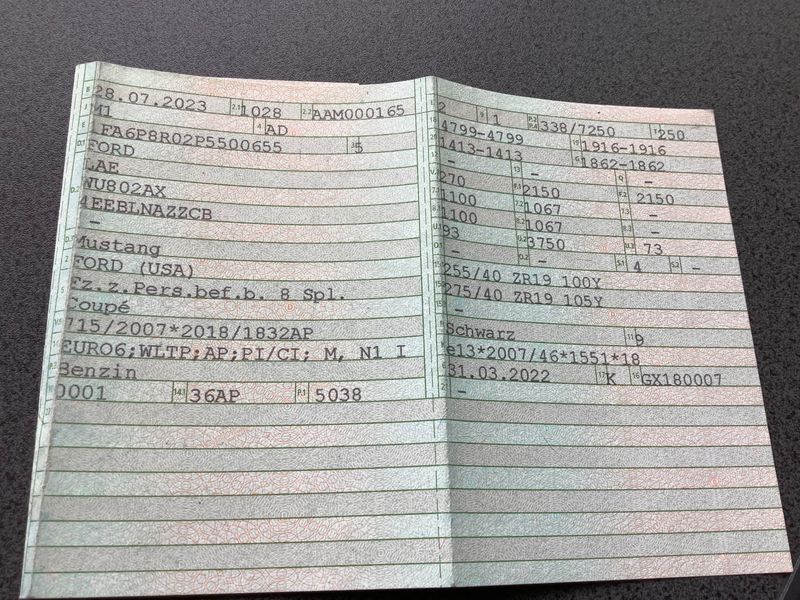 28.07.2023 2.1 1028 2.2 AAM000165
M1 4 AD
1FA6P8R02P5500655 3 5
FORD
LAE
WU802AX
4EEBLNAZZCB
–
Mustang
FORD (USA)
Fz.z.Pers.bef.b. 8 Spl.
Coupé
715/2007*2018/1832AP
EURO6;WLTP;AP;PI/CI; M, N1 I
Benzin
0001 14.1 36AP P.1 5038
2 9 1 P.2 P.4 338/7250 T 250
4799-4799 1916-1916
1413-1413 1862-1862
– 13 – Q –
270 F.1 2150 F.2 2150
1100 7.2 1067 7.3 –
1100 8.2 1067 8.3 –
93 U.2 3750 U.3 73
– O.2 – S.1 4 S.2 –
255/40 ZR19 100Y
275/40 ZR19 105Y
–
Schwarz 11 9
e13*2007/46*1551*18
31.03.2022 17 K 16 GX180007
21 –